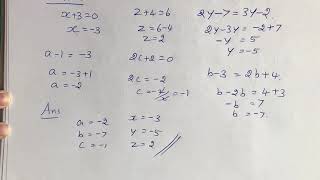 x+3=0
x=-3
z+4=6
z=6-4
z=2
2y-7=3y-2
2y-3y=-2+7
-y=5
y=-5
a-1=-3
a=-3+1
a=-2
2c+2=0
2c=-2
c=-2/2=-1
b-3=2b+4
b-2b=4+3
-b=7
b=-7
Ans
a=-2 x=-3
b=-7 y=-5
c=-1 z=2